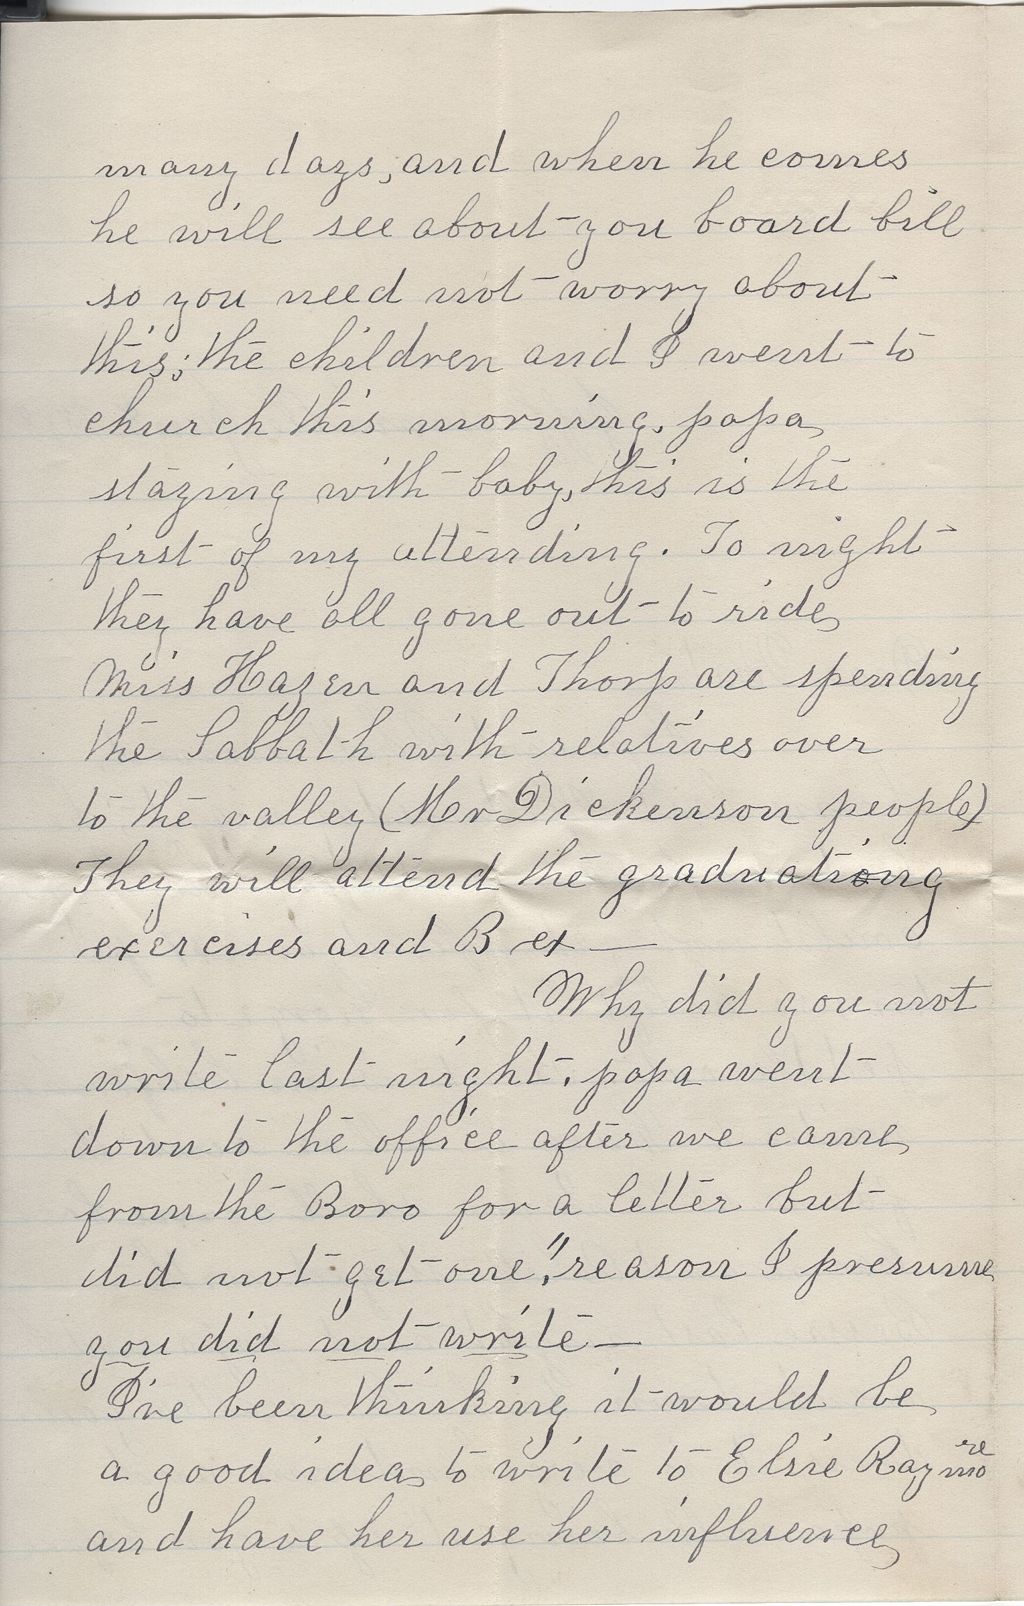 many days, and when he comes
he will see about you board bill
so you need not worry about
this; the children and I went to
church this morning, papa
staying with baby, this is the
first of my attending. To night
they have all gone out to ride,
Miss Hazen and Thorp are spending
the Sabbath with relatives over
to the valley (Mr Dickenson people)
They will attend the graduating
exercises and B ex —
Why did you not
write last night, papa went
down to the office after we came
from the Boro for a letter but
did not get one," reason I presume
you did not write —
I've been thinking it would be
a good idea to write to Elsie
and have her use her influence